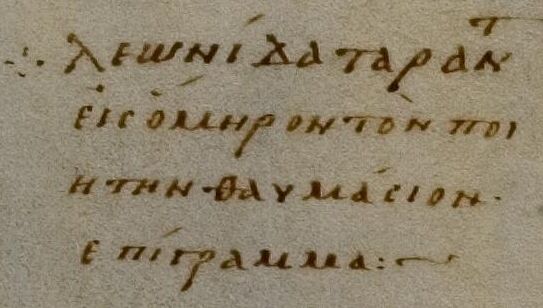 λεωνίδα ταραντ
εἰς ὅμηρον τὸν ποι
ητὴν θαυμάσιον·
ἐπίγραμμα:~